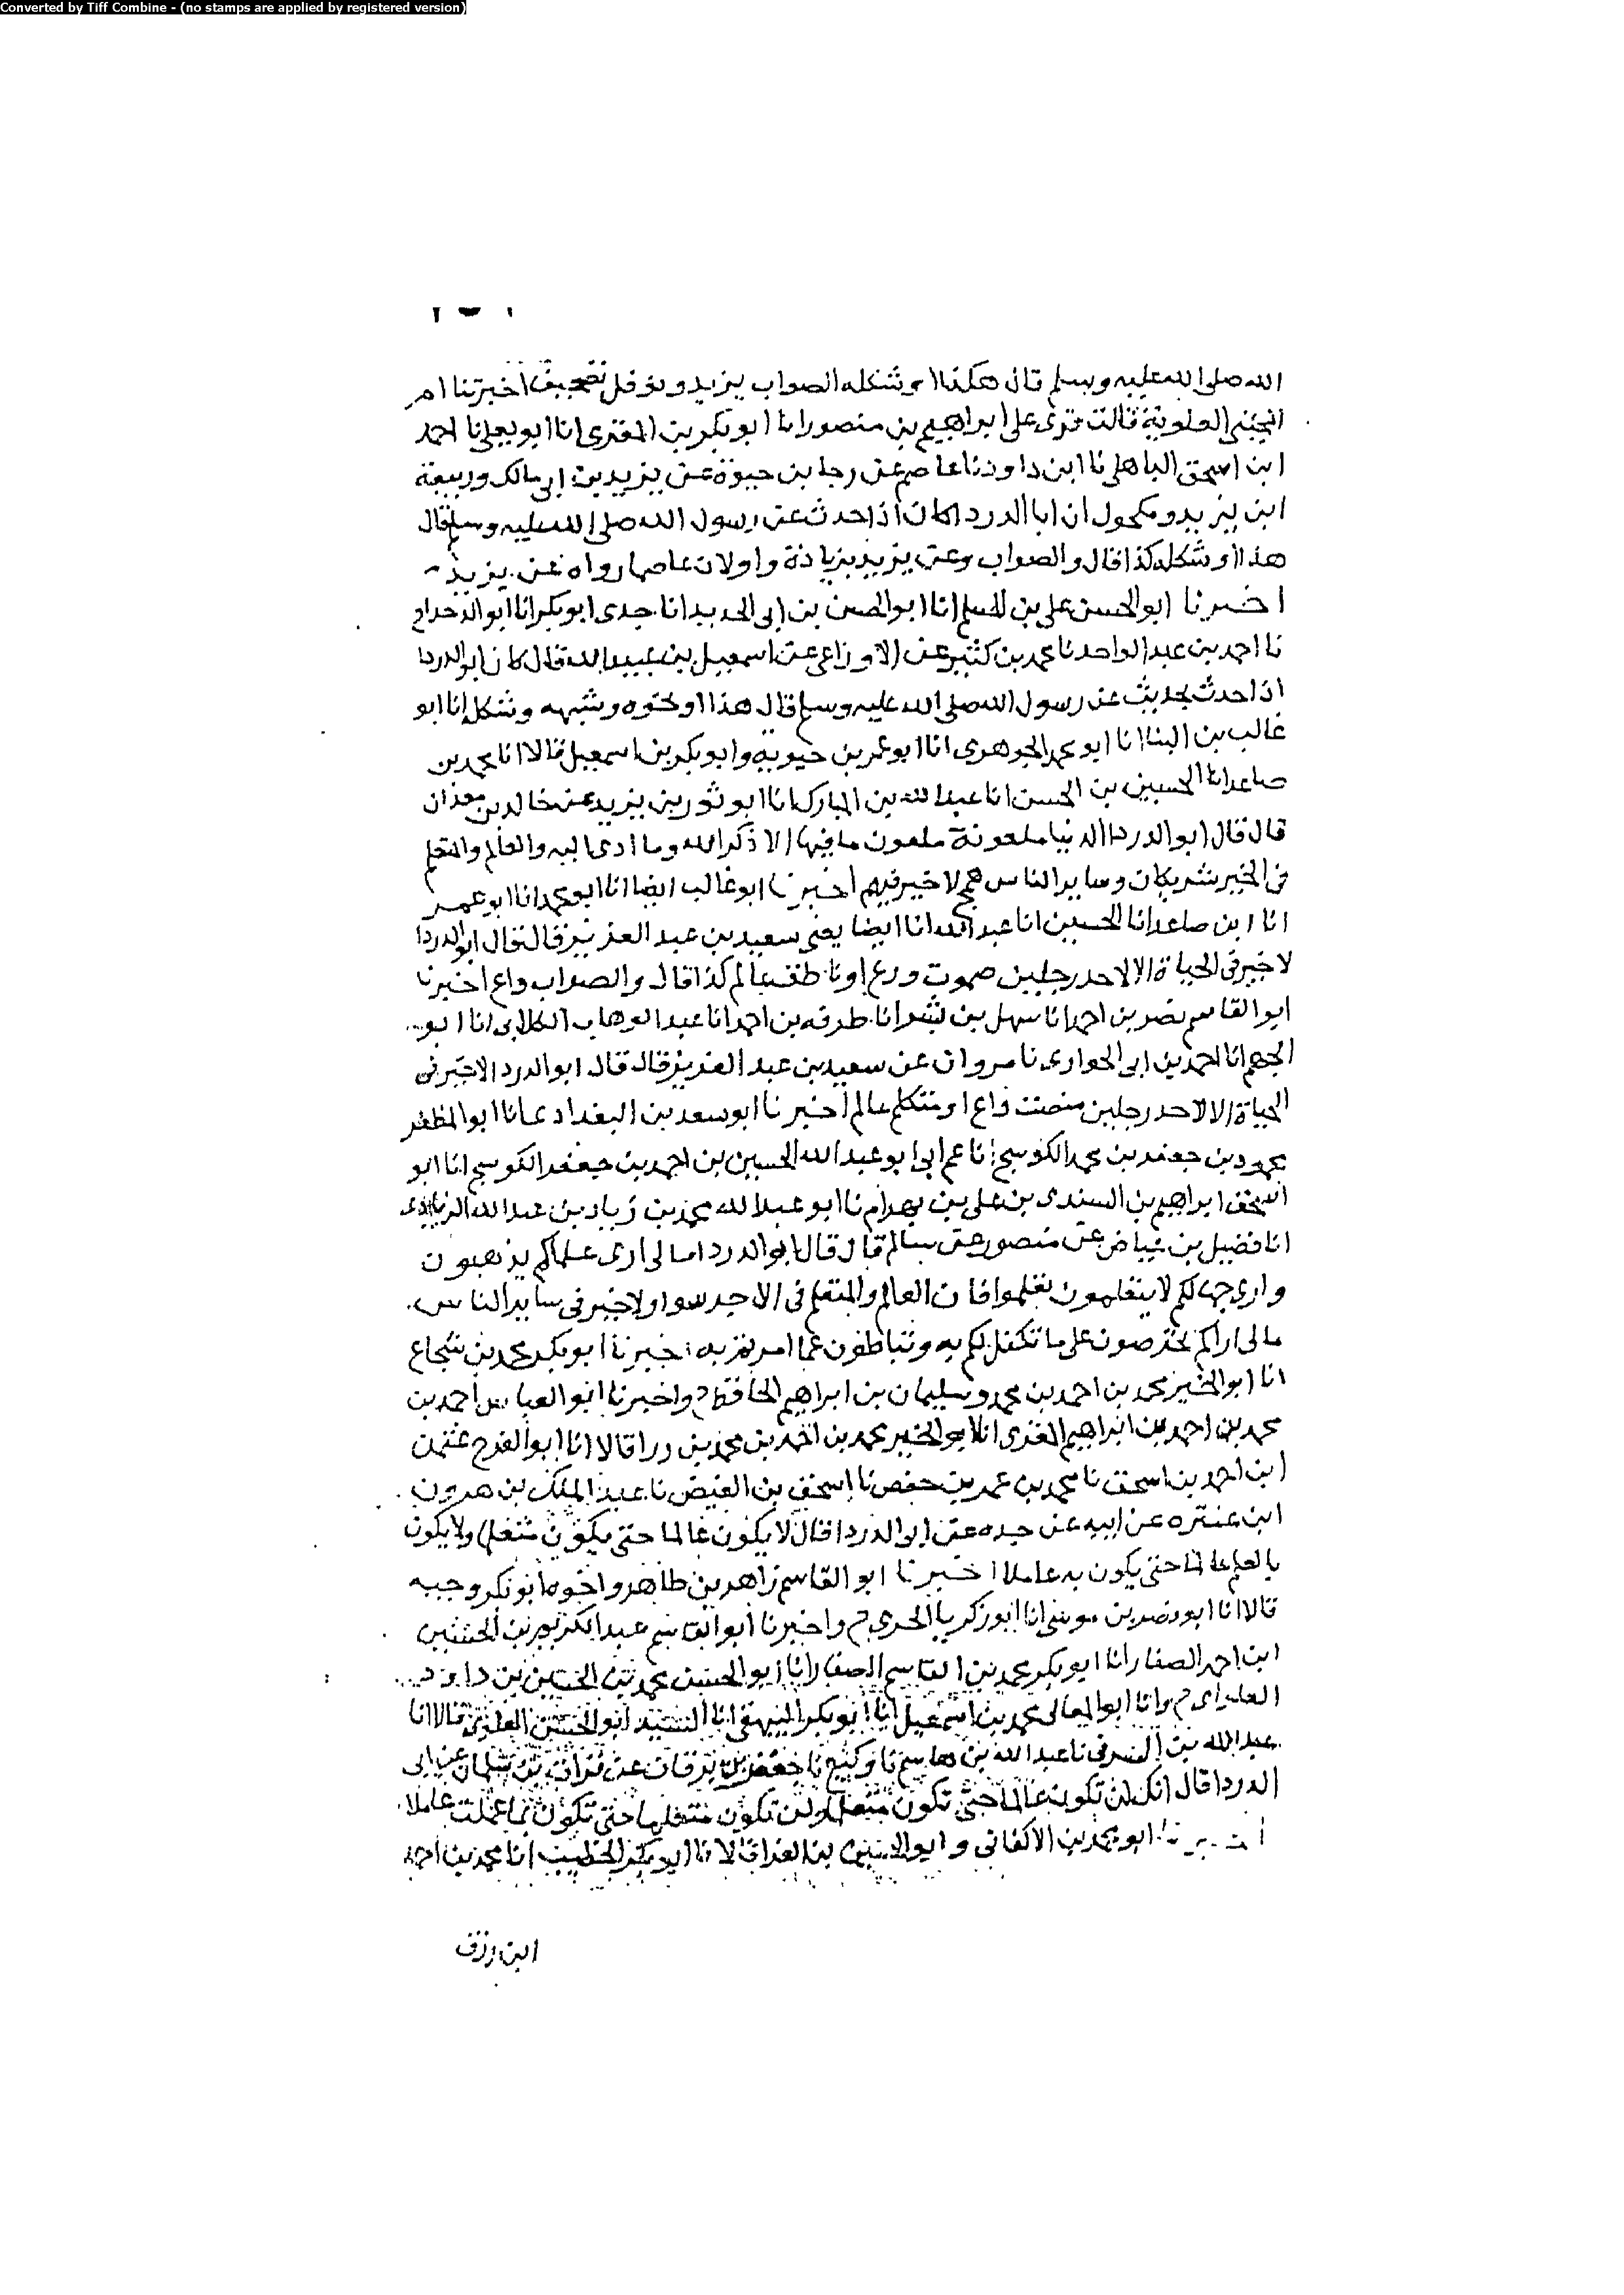 Converted by Tiff Combine - (no stamps are applied by registered version)
الله صلى الله عليه وسلم قال هكذا او شكله الصواب يزيد ونوفل تصحيف اخبرتنا ام
المجتبى العلوية قالت قرى على ابراهيم بن منصور انا ابو بكر بن المقرى انا ابو يعلى نا احمد
ابن اسحق الباهلى نا ابن داود نا عاصم عن رجا بن حيوة عن يزيد بن ابى مالك وربيعة
ابن يزيد ومكحول ان ابا الدردا كان اذا حدث عن رسول الله صلى الله عليه وسلم قال
هذا او شكله كذا قال والصواب وعن يزيد بزيادة واو لان عاصما رواه عن يزيد
اخبرنا ابو الحسن على بن المسلم انا ابو الحسن بن ابى الحديد انا جدى ابو بكر انا ابو الدحداح
نا احمد بن عبد الواحد نا محمد بن كثير عن الاوزاعى عن اسمعيل بن عبيد الله قال كان ابو الدردا
اذا حدث بحديث عن رسول الله صلى الله عليه وسلم قال هذا او نحوه وشبهه وشكله انا ابو
غالب بن البنا انا ابو محمد الجوهرى انا ابو عمر بن حيويه وابو بكر بن اسمعيل قالا انا محمد بن
صاعد انا الحسين بن الحسن انا عبد الله بن المبارك انا ابو ثور بن يزيد عن خالد بن معدان
قال قال ابو الدردا الدنيا ملعونة ملعون ما فيها الا ذكر الله وما ادى اليه والعالم والمتعلم
فى الخير شريكان وساير الناس همج لا خير فيهم اخبرنا ابو غالب ايضا انا ابو محمد انا ابو عمر
انا ابن صاعد انا الحسين انا عبد الله انا ايضا يعنى سعيد بن عبد العزيز قال قال ابو الدردا
لا خير فى الحياة الا لاحد رجلين صموت ورع او ناطق عالم كذا قال والصواب واع اخبرنا
ابو القاسم نصر بن احمد انا سهل بن بشر انا طرفه بن احمد انا عبد الوهاب الكلابى انا ابو
الجهم انا احمد بن ابى الحوارى نا مروان عن سعيد بن عبد العزيز قال قال ابو الدردا لا خير فى
الحياة الا لاحد رجلين منصت واع او متكلم عالم اخبرنا ابو سعد بن البغدادى انا ابو المظفر
محمود بن جعفر بن محمد الكوسج انا عم ابى ابو عبد الله الحسين بن احمد بن جعفر الكوسج انا ابو
اسحق ابراهيم بن السندى بن على بن بهرام نا ابو عبد الله محمد بن زياد بن عبد الله الزيادى
انا فضيل بن عياض عن منصور عن سالم قال قال ابو الدردا مالى ارى علماكم يذهبون
وارى جهالكم لا يتعلمون تعلموا فان العالم والمتعلم فى الاجر سوا ولا خير فى ساير الناس
مالى اراكم تحرصون على ما تكفل لكم به وتباطون عما امرتم به اخبرنا ابو بكر محمد بن شجاع
انا ابو الخير محمد بن احمد بن محمد وسليمان بن ابراهيم الحافظ ح واخبرنا ابو العباس احمد بن
محمد بن احمد بن ابراهيم انا ابو الخير محمد بن احمد بن محمد بن ررا قالا انا ابو الفرج عثمن
ابن احمد بن اسحق نا محمد بن عمر بن حفص نا اسحق بن الفيض نا عبد الملك بن هرون
ابن عنتره عن ابيه عن جده عن ابى الدردا قال لا يكون عالما حتى يكون متعلما ولا يكون
بالعلم عالما حتى يكون به عاملا اخبرنا ابو القاسم زاهر بن طاهر واخوه ابو بكر وجيه
قالا انا ابو نصر بن موسى انا ابو زكريا الحربى ح واخبرنا ابو القاسم عبد الكريم بن الحسين
ابن احمد الصفار انا ابو بكر محمد بن القاسم الصفار انا ابو الحسن محمد بن الحسين بن داود
العلوى ح وانا ابو المعالى محمد بن اسمعيل انا ابو بكر البيهقى انا السيد ابو الحسن العلوى قالا انا
عبد الله بن الشرقى نا عبد الله بن هاشم نا وكيع نا جعفر بن برقان عن فرات بن سلمان عن ابى
الدردا قال انك لن تكون عالما حتى تكون متعلما ولن تكون متعلما حتى تكون بما علمت عاملا
اخبرنا ابو محمد بن الاكفانى وابو بن الفرا قالا نا ابو بكر الخطيب انا محمد بن احمد
ابن رزق